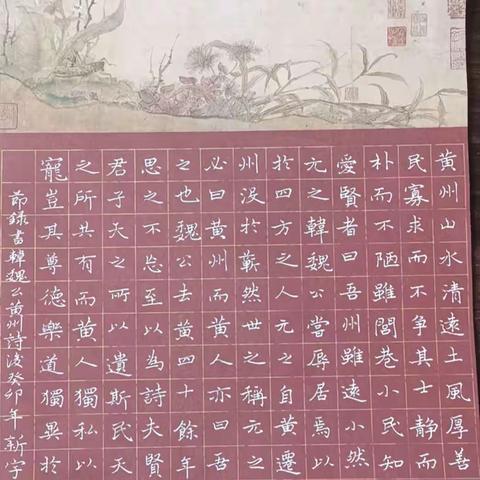 黄州山水清遠土風厚善
民寡求而不争其士静而
朴而不陋雖閭巷小民知
愛賢者曰吾州雖遠小然
元之韓魏公嘗辱居焉以
於四方之人元之自黄遷
州没於蘄然世之稱元之
必曰黄州而黄人亦曰吾
之也魏公去黄四十餘年
思之不忘至以為詩夫賢
君子天之所以遺斯民天
之所共有而黄人獨私以
寵豈其尊德樂道獨異於
節錄書韓魏公黄州詩後癸卯年新字